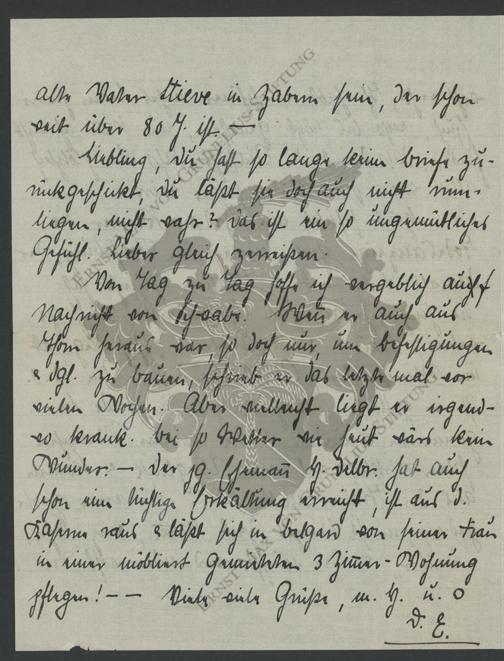 alte Vater Stieve in Zabern sein, der schon
weit über 80 J. ist. —
Liebling, du hast so lange keine briefe zu-
rückgeschickt, du läßt sie doch auch nicht rum-
liegen, nicht wahr? das ist ein so ungemütliches
Gefühl. Lieber gleich zerreißen.
Von Tag zu Tag hoffe ich vergeblich auf
Nachricht von Schwabe. Wenn er auch aus
Thorn heraus war, so doch nur, um befestigungen
& dgl. zu bauen, schrieb er das letzte mal vor
vielen Wochen. Aber vielleicht liegt er irgend-
wo krank. bei so Wetter wie heut wärs kein
Wunder. — der jg. Ehemann H. delbr. hat auch
schon eine tüchtige Erkältung erreicht, ist aus d.
Kaserne raus & läßt sich in belgard von seiner Frau
in einer möbliert gemieteten 3 Zimmer-Wohnung
pflegen! — — Viele viele Grüße, m. H. u. O
D. E.